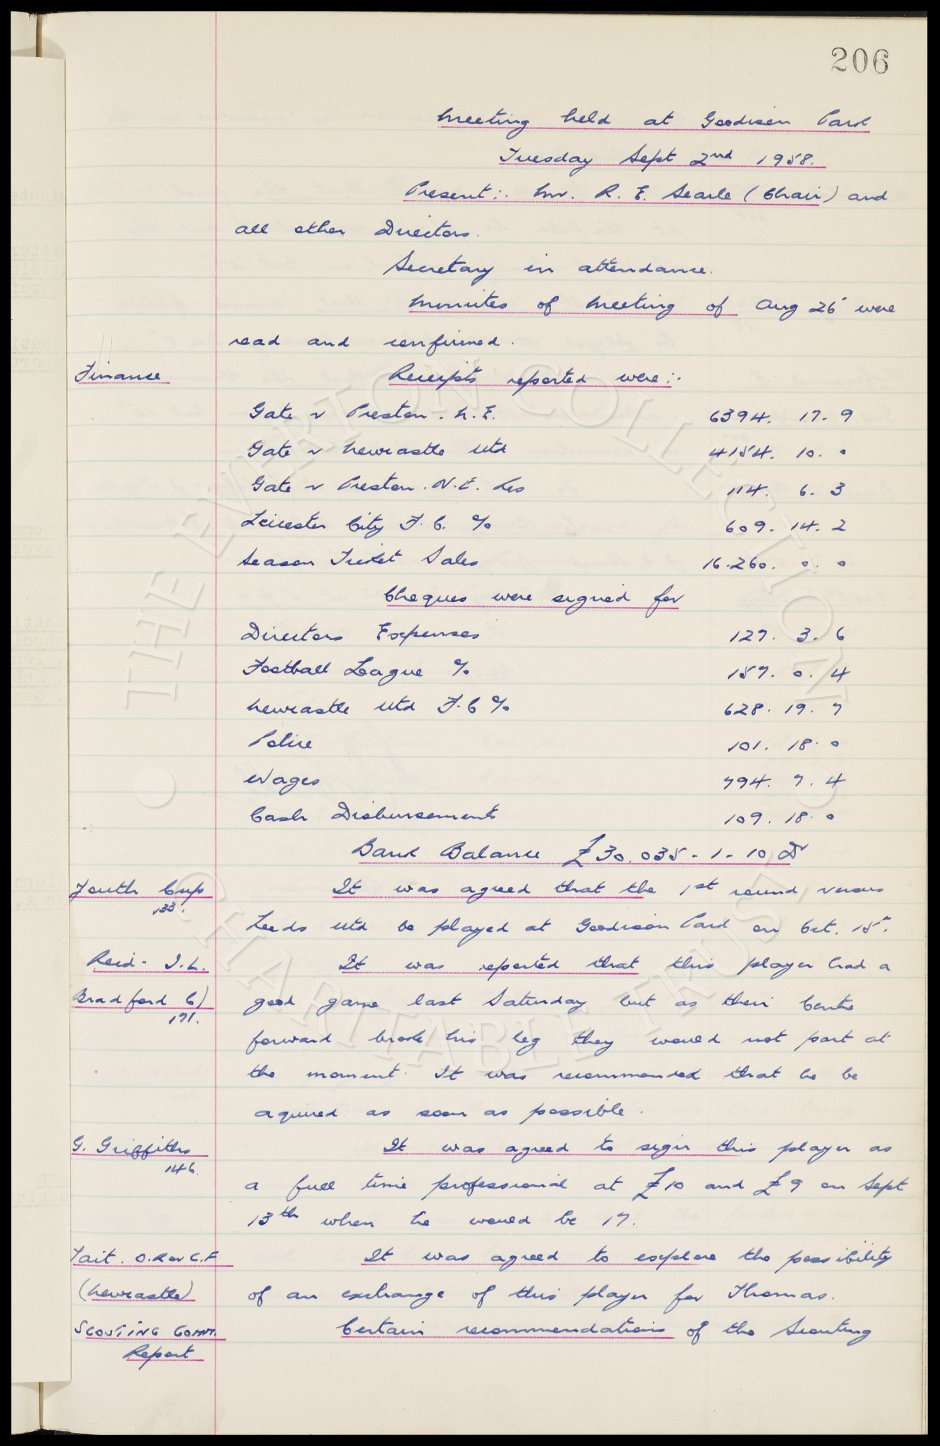 206
Meeting held at Goodison Park
Tuesday Sept 2nd 1958.
Present:. Mr. R. E. Searle (Chair) and
all other Directors.
Secretary in attendance.
Minutes of Meeting of Aug 26 were
read and confirmed.
Finance Receipts reported were:.
Gate v Preston. N.E. 6394. 17. 9
Gate v Newcastle Utd 4154. 10. 0
Gate v Preston. N.E. Res 114. 6. 3
Leicester City F.C. % 609. 14. 2
Season Ticket Sales 16.260. 0. 0
Cheques were signed for
Directors Expenses 127. 3. 6
Football League % 157. 0. 4
Newcastle Utd F.C % 628. 19. 7
Police 101. 18. 0
Wages 794. 7. 4
Cash Disbursements 109. 18. 0
Bank Balance £30.035-1-10
Youth Cup It was agreed that the 1st round versus
133.
Leeds Utd be played at Goodison Park on Oct. 15th.
Reid - I.L. It was reported that this player had a
Bradford C) good game last Saturday but as their Centre
191.
forward broke his leg they would not part at
the moment. It was recommended that he be
aquired as soon as possible.
G. Griffiths It was agreed to sign this player as
146.
a full time professional at £10 and £9 on Sept
13th when he would be 17.
Tait. O.R or C.F It was agreed to explore the possibility
(Newcastle) of an exchange of this player for Thomas.
SCOUTING COMM. Certain recommendations of the Scouting
Report
THE EVERTON COLLECTION
CHARITABLE TRUST